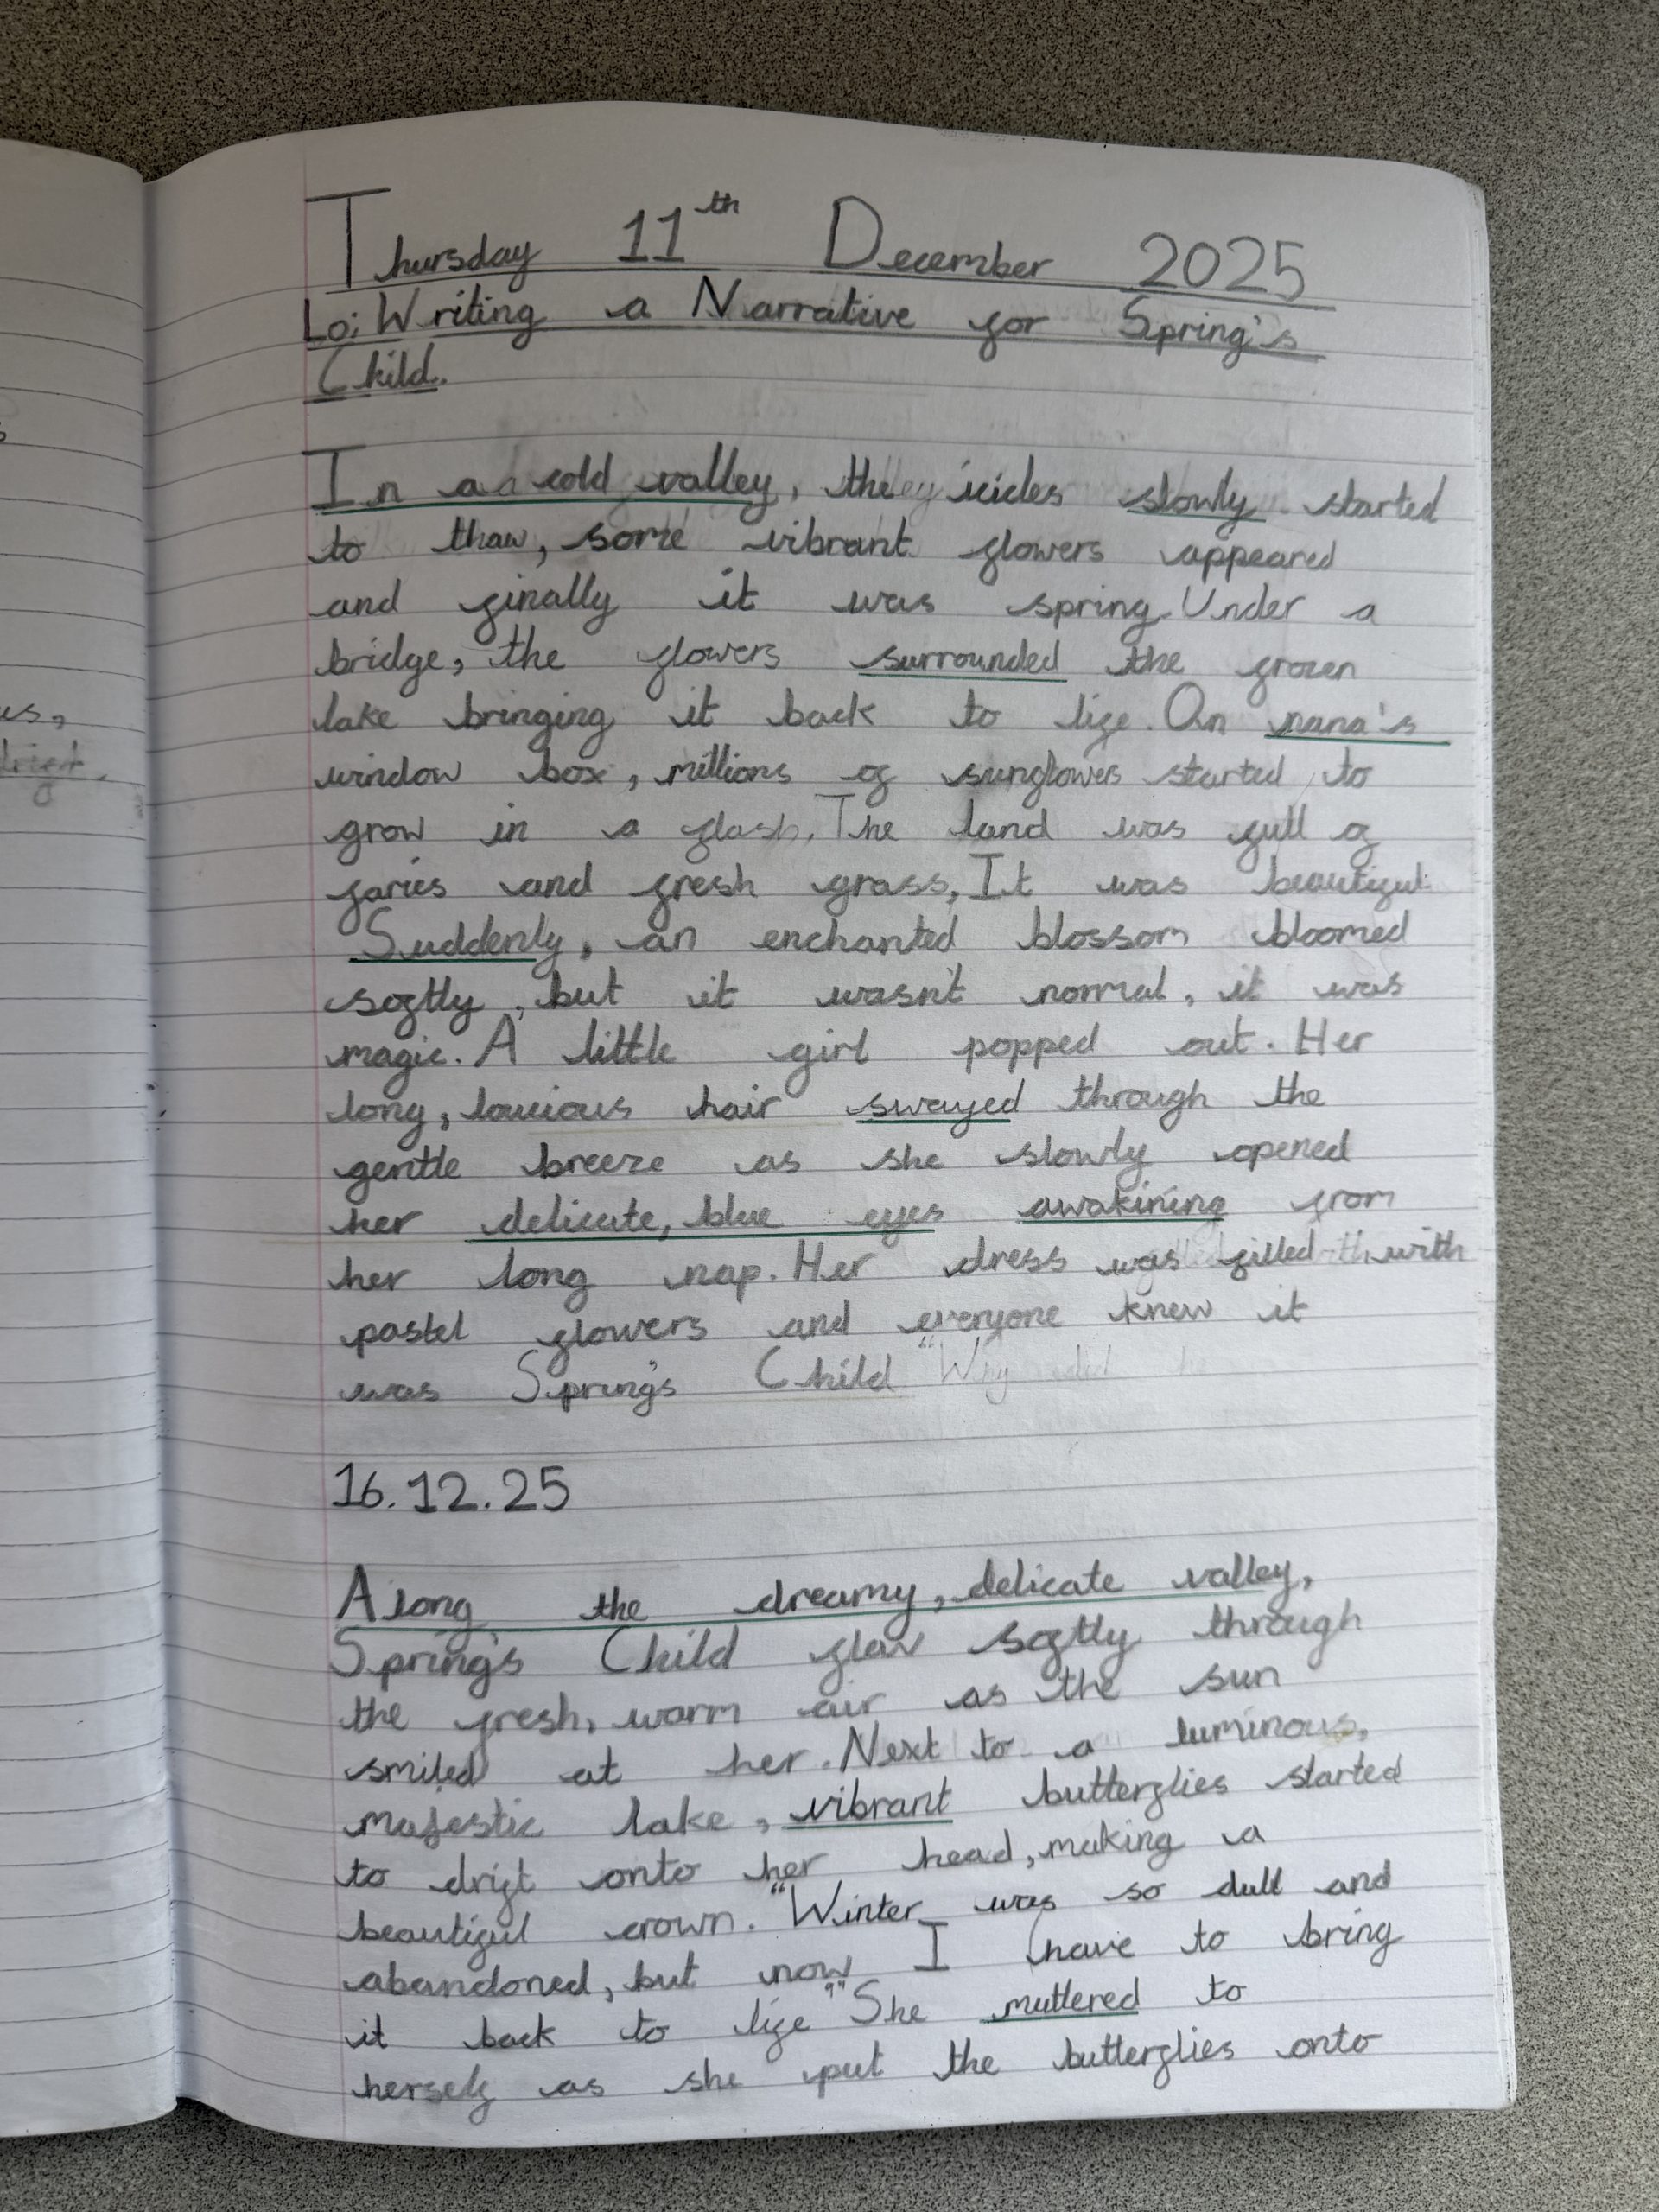 Thursday 11th December 2025
Lo: Writing a Narrative for Spring's
Child.
In a cold valley, the icicles slowly started
to thaw, some vibrant flowers appeared
and finally it was spring. Under a
bridge, the flowers surrounded the frozen
lake bringing it back to life. On nana's
window box, millions of sunflowers started to
grow in a flash. The land was full of
faries and fresh grass, It was beautiful.
Suddenly, an enchanted blossom bloomed
softly, but it wasn't normal, it was
magic. A little girl popped out. Her
long, loucious hair swayed through the
gentle breeze as she slowly opened
her delicate, blue eyes awakining from
her long nap. Her dress was filled with
pastel flowers and everyone knew it
was Spring's Child
16.12.25
Along the dreamy, delicate valley,
Spring's Child flew softly through
the fresh, warm air as the sun
smiled at her. Next to a luminous,
majestic lake, vibrant butterflies started
to drift onto her head, making a
beautiful crown. "Winter was so dull and
abandoned, but now I have to bring
it back to life" She muttered to
herself as she put the butterflies onto
us,